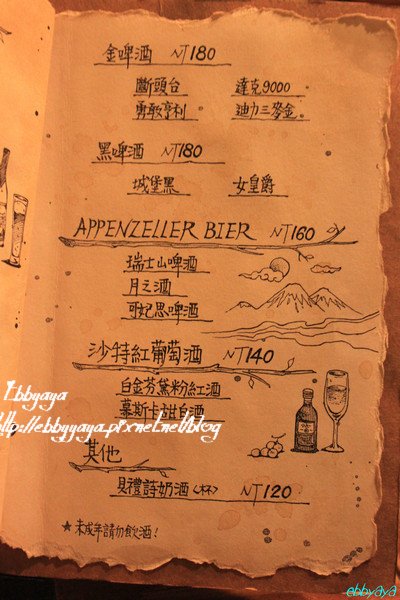 金啤酒 NT180
斷頭台 達克9000
勇敢亨利 迪力三麥金
黑啤酒 NT180
城堡黑 女皇爵
APPENZELLER BIER NT160
瑞士山啤酒
月之酒
可妃思啤酒
沙特紅葡萄酒 NT140
白金芬黛粉紅酒
慕斯卡甜白酒
Ebbyaya
http://ebbyyaya.pixnet.net/blog
其他
貝禮詩奶酒(杯) NT120
★未成年請勿飲酒!
ebbyaya